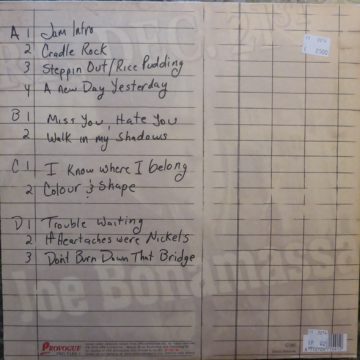 A 1 Jam Intro
2 Cradle Rock
3 Steppin Out/Rice Pudding
4 A new Day Yesterday
B 1 Miss You, Hate You
2 Walk in my Shadows
C 1 I Know where I belong
2 Colour & Shape
D 1 Trouble Waiting
2 If Heartaches were Nickels
3 Don't Burn Down That Bridge
PROVOGUE